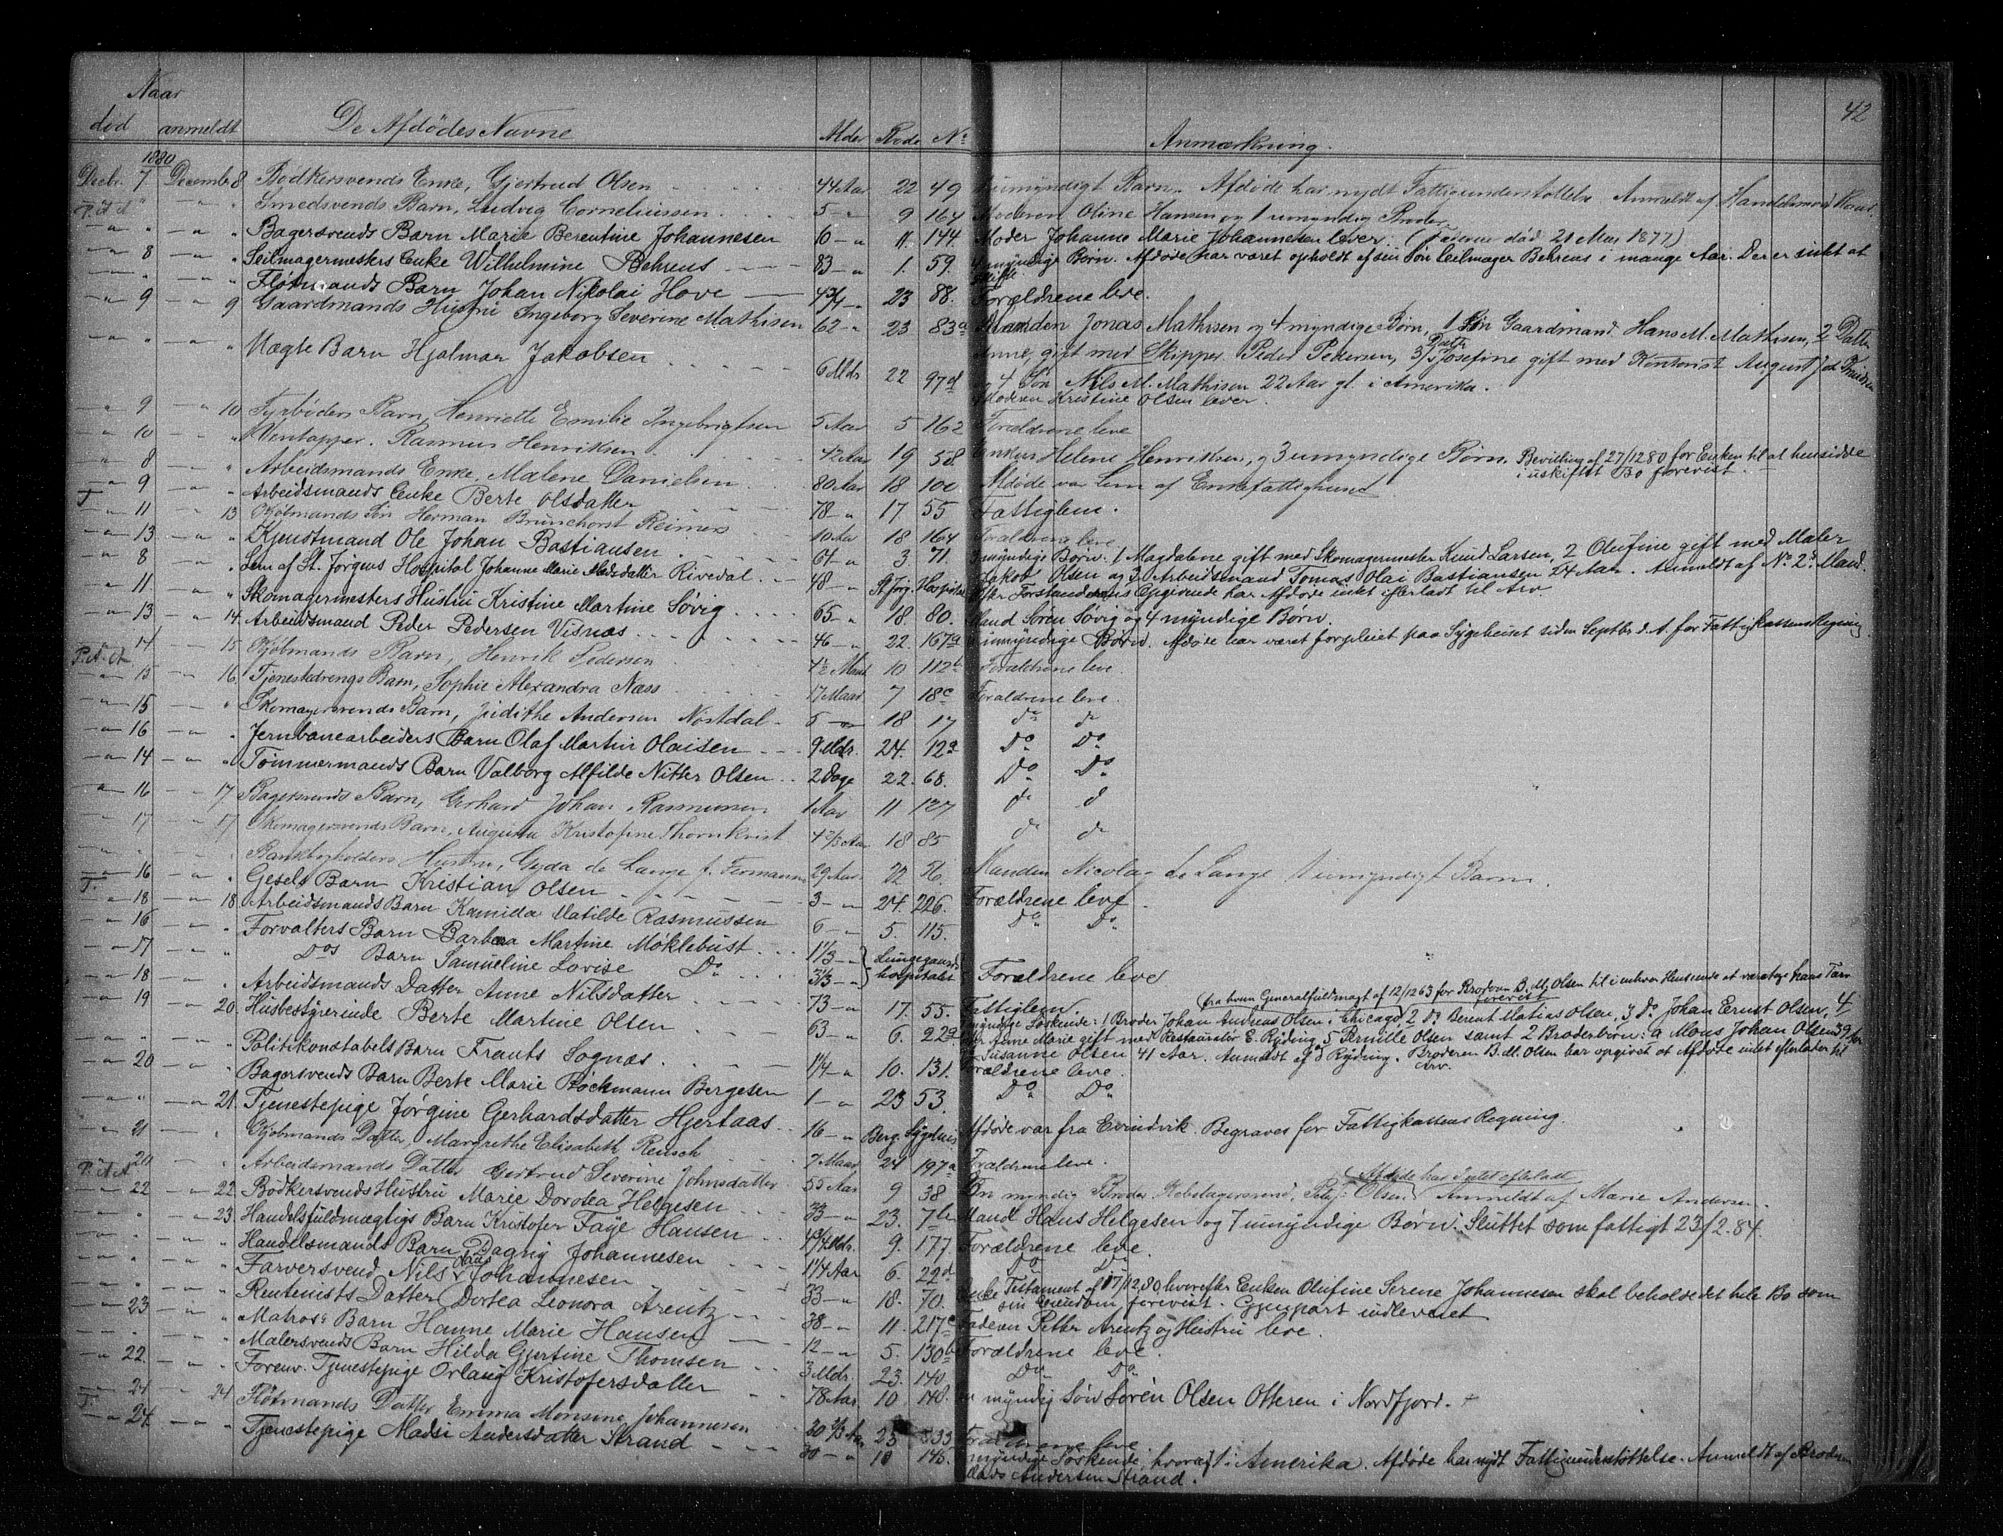 42
Naar
død anmeldt De Afdødes Navne Alder Rode No Anmærkning.
1880
Decbr. 7 December 8 Bødkersvends Enke, Gjertrud Olsen 44 Aar 22 49 umyndigt Barn. Afdøde har nydt Fattigunderstøttelse. Anmeldt af Handelsmand
P.A.A. " " Smedsvends Barn, Ludvig Corneliussen 5 - 9 164 Moderen Oline Hansen og 1 umyndig Broder
" " Bagersvends Barn Marie Berentine Johannesen 6 - 11. 144 Moder Johanne Marie Johannesen lever. (Faderen død 21 Mai 1877)
8 " Seilmagermesters Enke Wilhelmine Behrens 83 - 1. 59. myndige Børn. Afdøde har været opholdt af sin Søn Seilmager Behrens i mange Aar. Der er intet at
skifte
" " Fløtmands Barn Johan Nikolai Hove 4 3/4 - 23 88. Forældrene leve.
9 9 Gaardmands Hustru Ingeborg Severine Mathisen 62 - 23 83a Manden Jonas Mathisen og 4 myndige Børn, 1 Søn Gaardmand Hans M. Mathisen, 2 Datter
Anne, gift med Skipper Peder Pedersen, 3/ Dattr Josefine gift med Kontorist August
og 4 Søn Nils M. Mathisen 22 Aar gl. i Amerika.
" " Uægte Barn Hjalmar Jakobsen 6 Mdr 22 97d Moderen Kristine Olsen lever.
9 10 Fyrbøders Barn, Henriette Emilie Ingebrigtsen 5 Aar 5 162 Forældrene leve
10 " Vintapper. Rasmus Henriksen 42 Aar 19 58 Enken Helene Henriksen, og 3 umyndige Børn. Bevilling af 27/12 80 for Enken til at hensidde
i uskiftet Bo forevist.
8 " Arbeidsmands Enke, Malene Danielsen 80 Aar 18 100 Afdøde var Lem af Enkefattighuset
9 " Arbeidsmands Enke Berte Olsdatter 78 - 17 55 Fattiglem.
T 11 13 Kjøbmands Søn Herman Brunchorst Reimers 10 Aar 18 164 Forældrene leve
13 " Kjenstmand Ole Johan Bastiansen 64 - 3 71. 3 myndige Børn. 1 Magdalene gift med Skomagermester Knud Larsen, 2 Olufine gift med Maler
Jakob Olsen og 3 Arbeidsmand Tomas Olai Bastiansen 24 Aar. Anmeldt af No 2s Mand.
8 " Lem af St. Jørgens Hospital Johanne Marie Madsdatter Rivedal 48 - St. Jørg. Hospital Efter Forstanderens Opgivende har Afdøde intet efterladt til Arv
11 " Skomagermesters Hustru Kristine Martine Søvig 65 - 18 80. Mand Søren Søvig og 4 myndige Børn.
13 14. Arbeidsmand Peder Pedersen Visnæs 46 - 22. 167a umyndige Børn. Afdøde har været forpleiet paa Sygehuset siden Septbr d. A. for Fattigkassens Regning
P.A.A. 14 15 Kjøbmands Barn, Henrik Pedersen 4½ Maan 10 112b Forældrene leve
15 16 Tjenestedrengs Barn, Sophie Alexandra Næss 17 Maar 7 18c Forældrene leve
15 " Skomagersvends Barn, Judithe Andersen Nøstdal 5 - 18 17 do do
16 " Jernbanearbeiders Barn Olaf Martin Olaisen 9 Mdr. 24. 12a Do Do
14 " Tømmermands Barn Valborg Alfilde Nitter Olsen 2 Dage 22. 68. Do Do
16 17 Bagersvends Barn, Gerhard Johan Rasmussen 1 Aar 11 127 do do
17 17 Skomagersvends Barn, Augusta Kristofine Thornkvist 4 2/3 Aar 18 85 do do
" " Bankbogholders Hustru, Gyda de Lange f. Fermann 29 Aar 22 56. Manden Nicolay de Lange 1 umyndigt Barn.
T. 16 " Gesels Barn Kristian Olsen 3 - 24. 226. Forældrene leve
18 18 Arbeidsmands Barn Kamilla Matilde Rasmussen 6 - 5. 115. Do Do
16 " Forvalters Barn Barbera Martine Møklebust 1 1/3 - Lungegaards
17 " Dos Barn Samueline Lovise Do 3 1/3 - hospitalet Forældrene leve
18 " Arbeidsmands Datter Anne Nilsdatter 73 - 17. 55. Fattiglem.
(fra hvem Generalfuldmagt af 12/12 63 for Broderen B. M. Olsen til i enhver Henseende at varetage hans Tarv
forevist
19 20 Husbestyrerinde Berte Martine Olsen 63 - 6. 22a myndige Søskende: 1 Broder Johan Andreas Olsen i Chicago 2 Do Berent Matias Olsen, 3 Do. Johan Ernst Olsen, 4
Anne Marie gift med Restauratør E. Ryding 5 Pernille Olsen samt 2 Broderbørn: a Mons Johan Olsen 39 Aar
Susanne Olsen 41 Aar. Anmeldt af Ryding. Broderen B. M. Olsen har opgivet at Afdøde intet efterlader til
Arv.
" " Politikonstabels Barn Frants Sognæs 1 1/4 - 10. 131. Forældrene leve.
20 " Bagersvends Barn Berte Marie Bøckmann Bergesen 1 - 23 53. Do Do
" 21. Tjenestepige Jørgine Gerhardsdatter Hjertaas 16 - Berg. Sygehus Afdøde var fra Evindvik. Begraves for Fattigkassens Regning.
21 " Kjøbmands Datter, Margrethe Elisabeth Reusch 7 Maan 24 197a Forældrene leve.
(Afdøde har Intet efterladt
P.A.A. 20 " Arbeidsmands Datter Gertrud Severine Johnsdatter 55 Aar 9 38 En myndig Broder, Olsen (Anmeldt af Marie Andersen.
22 22 Bødkersvends Hustru Marie Dorotea Helgesen 33 - 23. 7b Mand Hans Helgesen og 7 umyndige Børn. Sluttet som fattigt 23/2. 84.
" 23. Handelsfuldmægtigs Barn Kristofer Faye Hansen 4 3/4 Mdr. 9. 177. Forældrene leve.
" " Handelsmands Barn Dagny Johannesen 1 1/4 Aar 6. 22d Do Do
" " Farversvend Nils Johannesen 33 - 18. 70. Enke Testament af 17/12 80, hvorefter Enken Olufine Serene Johannesen skal beholde det hele Bo som
sin Eiendom forevist. Gjenpart udleveret
" " Rentenists Datter Dortea Leonora Arentz 38 - 11. 217c Faderen Petter Arentz og Hustru leve.
23 " Matros's Barn Hanne Marie Hansen 12 - 5. 130b Forældrene leve.
" " Malersvends Barn Hilda Gjertine Thomsen 3 Mdr. 23. 140 Do Do
22. " Forenv. Tjenestepige Orlaug Kristofersdatter 78 Aar 10 148. en myndig Søn Søren Olsen Otteren i Nordfjord. +
T. 21 24 Fløtmands Datter Emma Monsine Johannesen 20 2/3 Aar 23 333 Forældrene leve
24. " Tjenestepige Madsi Andersdatter Strand 30 - 10 145. myndige Søskende, hvoraf 1 i Amerika. Afdøde har nydt Fattigunderstøttelse. Anmeldt af Broderen
Mads Andersen Strand.